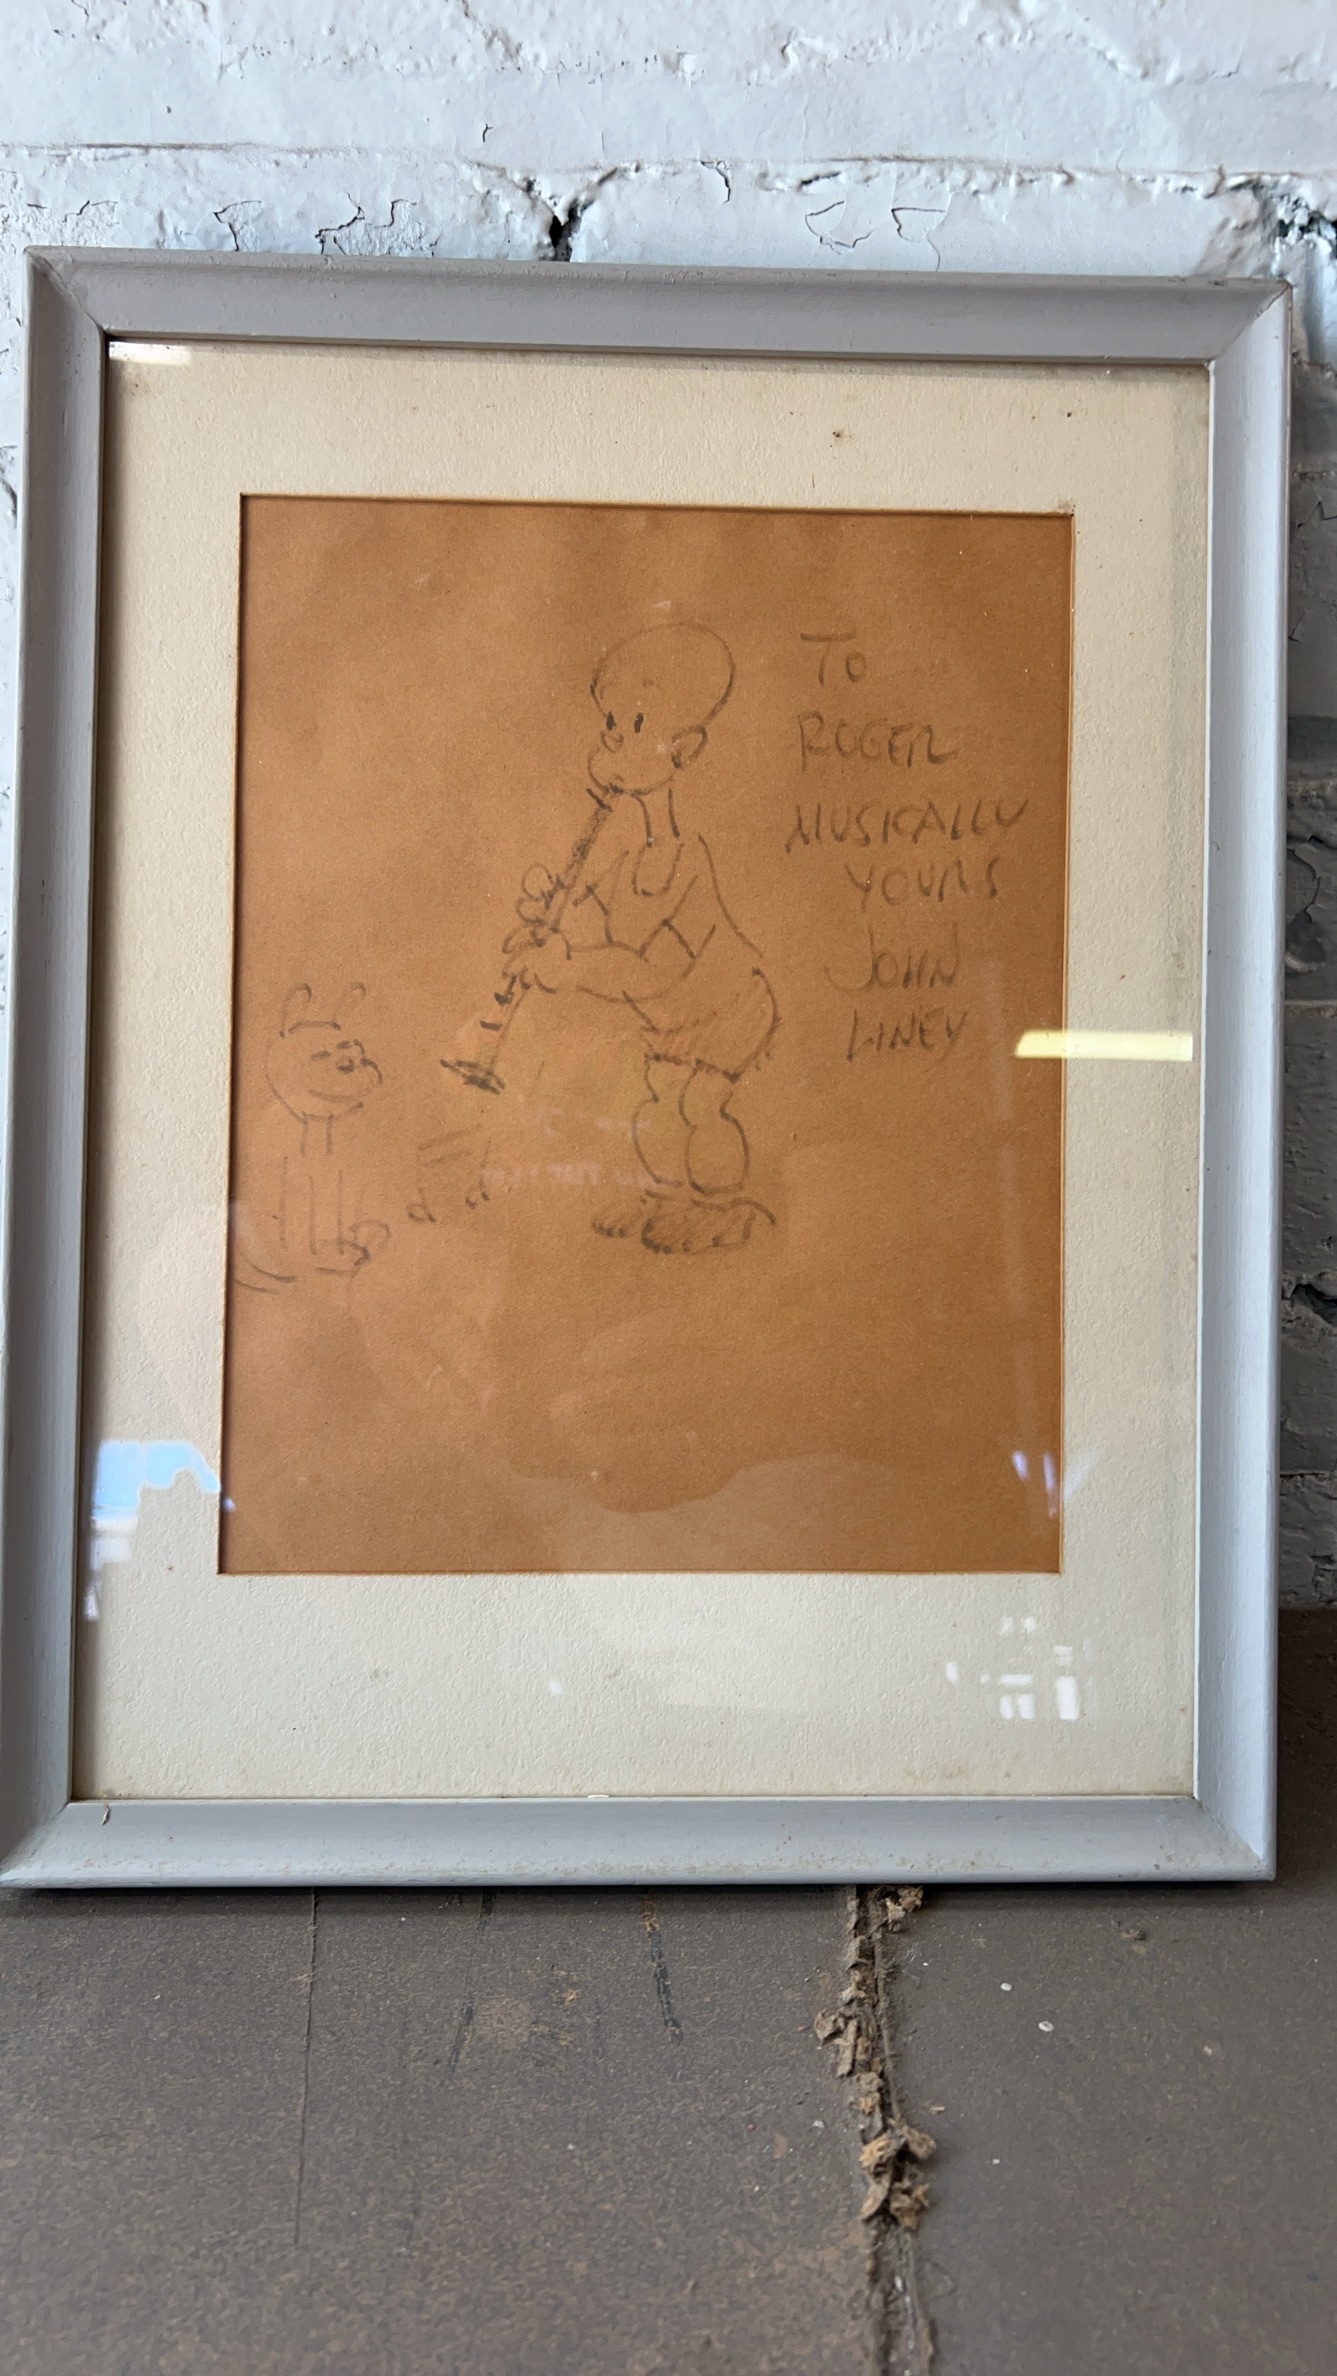 TO
ROGER
MUSICALLY
YOURS
JOHN
LINEY